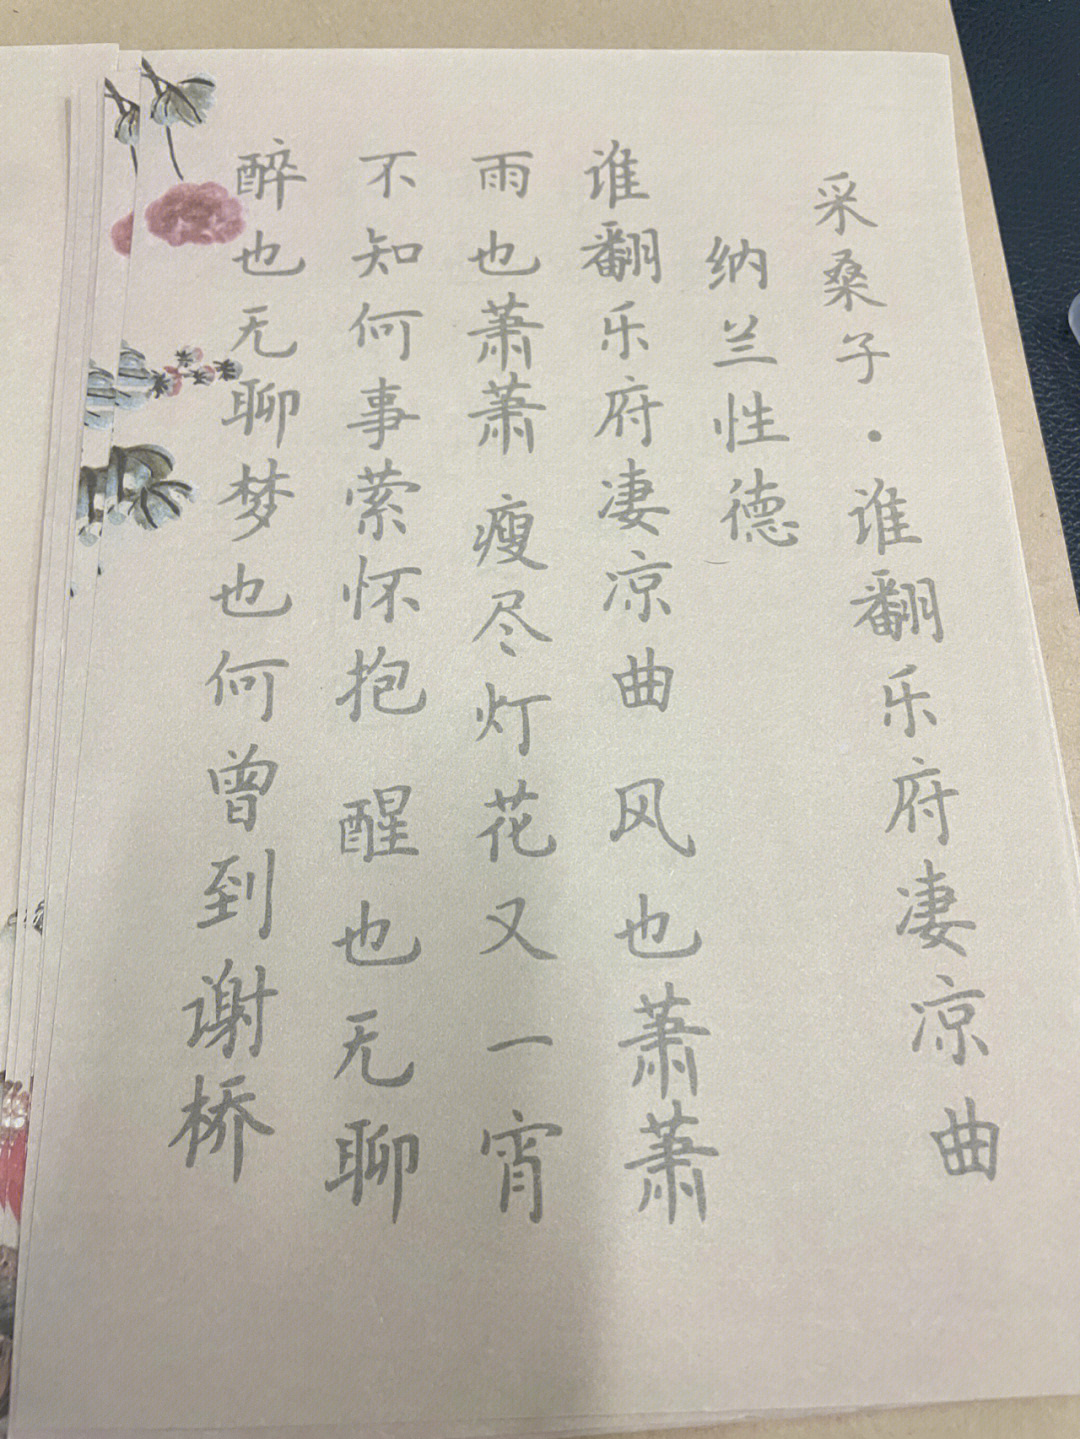 采桑子·谁翻乐府凄凉曲
纳兰性德
谁翻乐府凄凉曲 风也萧萧
雨也萧萧 瘦尽灯花又一宵
不知何事萦怀抱 醒也无聊
醉也无聊梦也何曾到谢桥